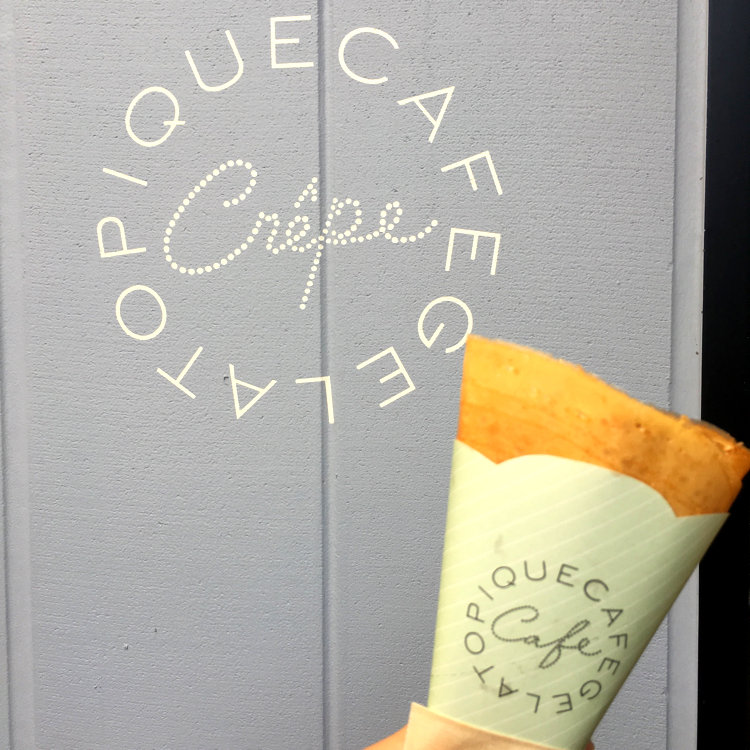 GELATO PIQUE CAFE
Crêpe
GELATO PIQUE CAFE
Café